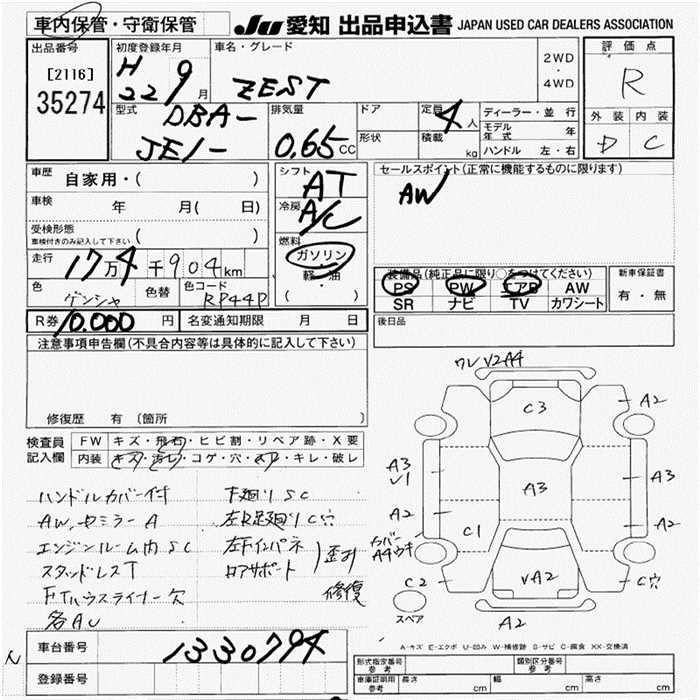 車内保管・守衛保管
JU 愛知 出品申込書 JAPAN USED CAR DEALERS ASSOCIATION
出品番号
[2116]
35274
初度登録年月
H
22 9月
車名・グレード
ZEST
2WD
・
4WD
評価点
R
外装 内装
D C
型式
DBA-
JE1-
排気量
0.65 CC
ドア
形状
定員 4人
積載 kg
ディーラー・並行
モデル年式 年
ハンドル 左・右
車歴 自家用・( )
車検 年 月( 日)
受検形態
車検付きのみ記入して下さい ( )
走行 17万4千904km
色 ゲンシャ 色替 色コード RP44P
R券 10.000 円 名変通知期限 月 日
シフト AT
冷房 A/C
燃料
ガソリン
軽・油
( )
セールスポイント(正常に機能するものに限ります)
AW
装備品(純正品に限り○をつけてください)
PS PW エアB AW
SR ナビ TV カワシート
新車保証書
有・無
後日品
注意事項申告欄(不具合内容等は具体的に記入して下さい)
修復歴 有 〔箇所 〕
検査員
記入欄
FW キズ・飛石・ヒビ割・リペア跡・X要
内装 キズ・汚レ・コゲ・穴・スレ・キレ・破レ
ハンドルカバー付
AW, ヤミラー A
エンジンルーム内 SC
スタッドレスT
FTハウスライナー欠
各AU
下廻り SC
左R足廻り C穴
左Fインパネ
ロアサポート
歪み
修復
ワレ V2A4
C3
A2
A3
V1
A3
A3
A2
A2
C1
カバー
A4ウキ
C2
VA2
C穴
スペア
A2
A-キズ E-エクボ U-凹み W-補修跡 S-サビ C-腐食 XX-交換済
車台番号 1330794
登録番号
形式指定番号
参考
類別区分番号
参考
車庫証明用
参考
長さ cm 幅 cm 高さ cm